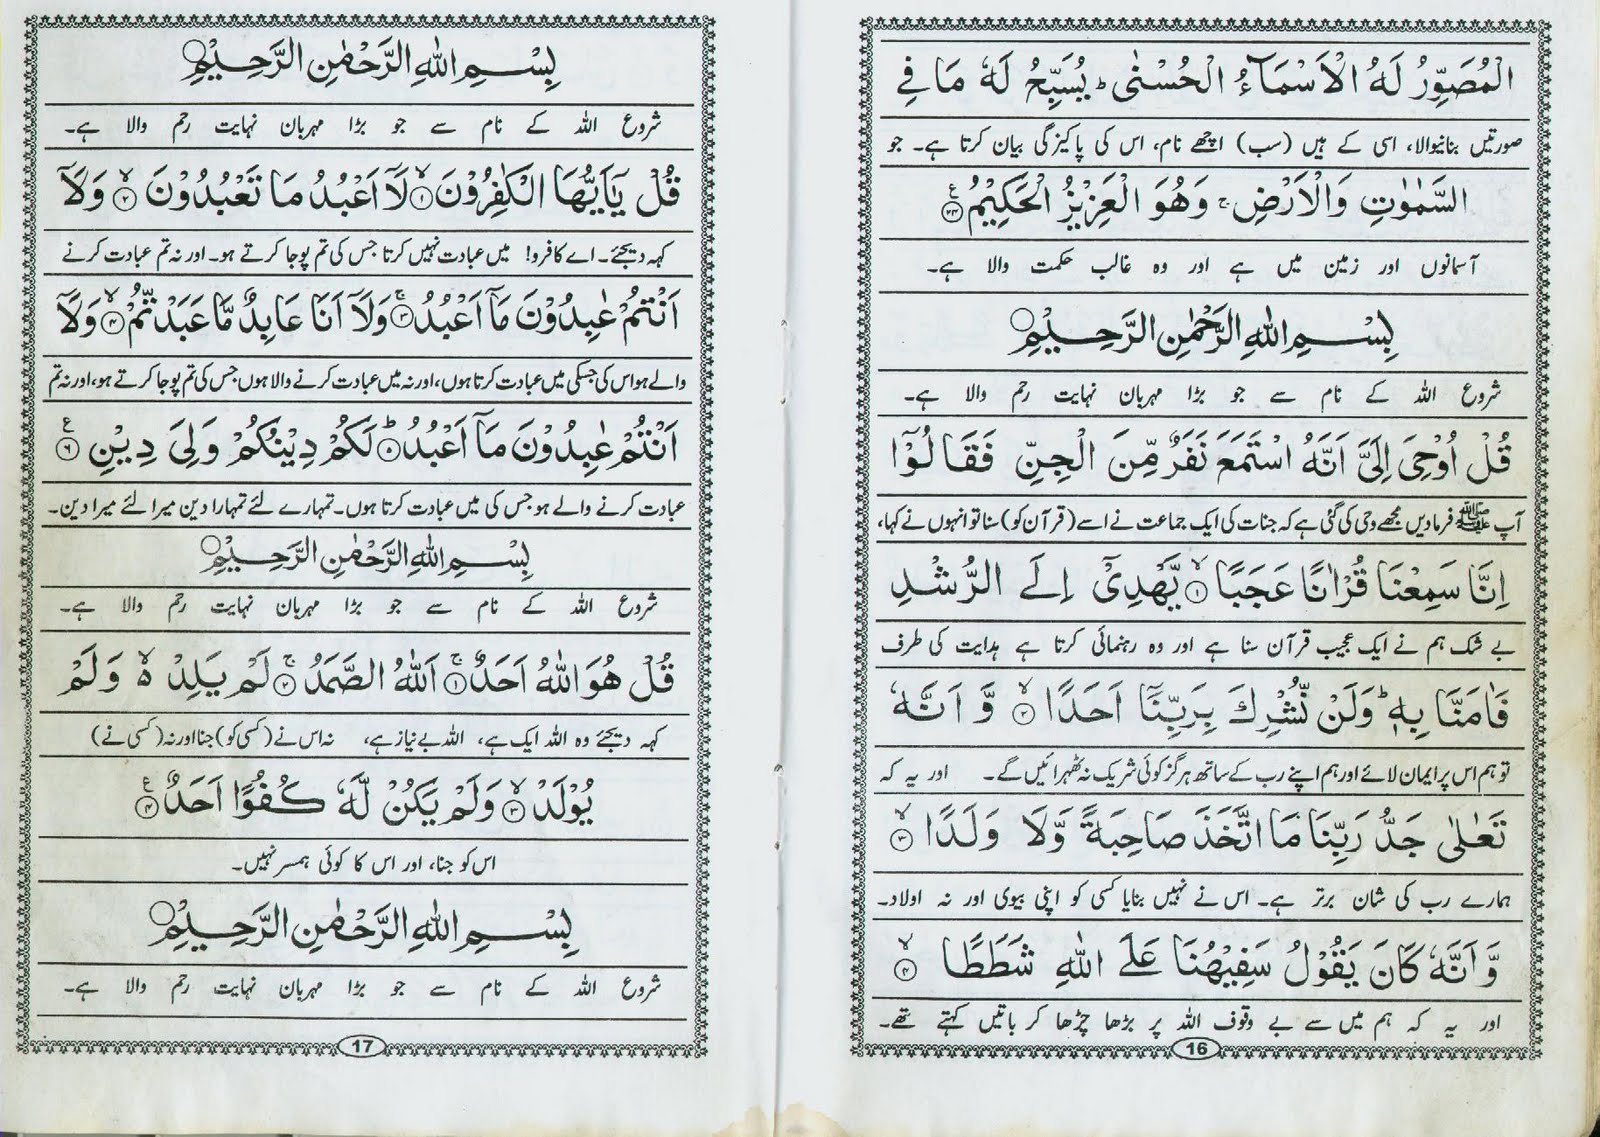 الْمُصَوِّرُ لَهُ الْاَسْمَآءُ الْحُسْنٰى ؕ یُسَبِّحُ لَهٗ مَا فِی
صورتیں بنانیوالا، اسی کے ہیں (سب) اچھے نام، اس کی پاکیزگی بیان کرتا ہے۔ جو
السَّمٰوٰتِ وَالْاَرْضِ ۚ وَهُوَ الْعَزِیْزُ الْحَكِیْمُ ۝۲۴ ع
آسمانوں اور زمین میں ہے اور وہ غالب حکمت والا ہے۔
بِسْمِ اللهِ الرَّحْمٰنِ الرَّحِیْمِ ۝
شروع اللہ کے نام سے جو بڑا مہربان نہایت رحم والا ہے۔
قُلْ اُوْحِیَ اِلَیَّ اَنَّهُ اسْتَمَعَ نَفَرٌ مِّنَ الْجِنِّ فَقَالُوْۤا
آپ ﷺ فرمادیں مجھے وحی کی گئی ہے کہ جنات کی ایک جماعت نے اسے (قرآن کو) سنا تو انہوں نے کہا،
اِنَّا سَمِعْنَا قُرْاٰنًا عَجَبًا ۝۱ۙ یَّهْدِیْۤ اِلَی الرُّشْدِ
بے شک ہم نے ایک عجیب قرآن سنا ہے اور وہ رہنمائی کرتا ہے ہدایت کی طرف
فَاٰمَنَّا بِهٖ ؕ وَلَنْ نُّشْرِكَ بِرَبِّنَاۤ اَحَدًا ۝۲ۙ وَّ اَنَّهٗ
تو ہم اس پر ایمان لائے اور ہم اپنے رب کے ساتھ ہرگز کوئی شریک نہ ٹھہرائیں گے۔ اور یہ کہ
تَعٰلٰی جَدُّ رَبِّنَا مَا اتَّخَذَ صَاحِبَةً وَّلَا وَلَدًا ۝۳ۙ
ہمارے رب کی شان برتر ہے۔ اس نے نہیں بنایا کسی کو اپنی بیوی اور نہ اولاد۔
وَّ اَنَّهٗ كَانَ یَقُوْلُ سَفِیْهُنَا عَلَی اللهِ شَطَطًا ۝۴ۙ
اور یہ کہ ہم میں سے بے وقوف اللہ پر بڑھا چڑھا کر باتیں کہتے تھے۔
16
بِسْمِ اللهِ الرَّحْمٰنِ الرَّحِیْمِ ۝
شروع اللہ کے نام سے جو بڑا مہربان نہایت رحم والا ہے۔
قُلْ یٰۤاَیُّهَا الْكٰفِرُوْنَ ۝۱ۙ لَاۤ اَعْبُدُ مَا تَعْبُدُوْنَ ۝۲ۙ وَلَاۤ
کہہ دیجئے۔ اے کافرو! میں عبادت نہیں کرتا جس کی تم پوجا کرتے ہو۔ اور نہ تم عبادت کرنے
اَنْتُمْ عٰبِدُوْنَ مَاۤ اَعْبُدُ ۝۳ۚ وَلَاۤ اَنَا عَابِدٌ مَّا عَبَدْتُّمْ ۝۴ۙ وَلَاۤ
والے ہو اس کی جسکی میں عبادت کرتا ہوں، اور نہ میں عبادت کرنے والا ہوں جس کی تم پوجا کرتے ہو، اور نہ تم
اَنْتُمْ عٰبِدُوْنَ مَاۤ اَعْبُدُ ۝ؕ لَكُمْ دِیْنُكُمْ وَلِیَ دِیْنِ ۝۶ ع
عبادت کرنے والے ہو جس کی میں عبادت کرتا ہوں۔ تمہارے لئے تمہارا دین میرا لئے میرا دین۔
بِسْمِ اللهِ الرَّحْمٰنِ الرَّحِیْمِ ۝
شروع اللہ کے نام سے جو بڑا مہربان نہایت رحم والا ہے۔
قُلْ هُوَ اللهُ اَحَدٌ ۝۱ۚ اَللهُ الصَّمَدُ ۝۲ۚ لَمْ یَلِدْ ۙ۬ وَلَمْ
کہہ دیجئے وہ اللہ ایک ہے، اللہ بے نیاز ہے، نہ اس نے (کسی کو) جنا اور نہ (کسی نے)
یُوْلَدْ ۝۳ۙ وَلَمْ یَكُنْ لَّهٗ كُفُوًا اَحَدٌ ۝۴ ع
اس کو جنا، اور اس کا کوئی ہمسر نہیں۔
بِسْمِ اللهِ الرَّحْمٰنِ الرَّحِیْمِ ۝
شروع اللہ کے نام سے جو بڑا مہربان نہایت رحم والا ہے۔
17